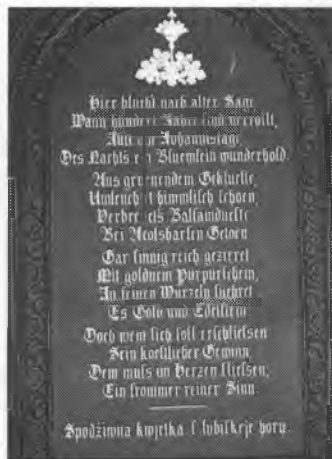 Hier blueht nach alter Sage,
Wann hundert Jahre sind verrollt,
Am Johannistage,
Des Nachts ein Bluemlein wunderhold.
Aus gruenendem Gekluefte,
Umleuchtet himmlisch schoen,
Balsamduefte
Bei Aeolsharfen Getoen
Gar sinnig reich gezieret
Mit goldnem Purpurschein,
In seinen Wurzeln fuehret
Es Gold und Edelstein.
Doch wem sich soll erschliefsen
Sein koestlicher Gewinn,
Dem mufs im Herzen fliefsen,
Ein frommer reiner Sinn.
Spodźiwna kwjetka f lubijkeje hory.